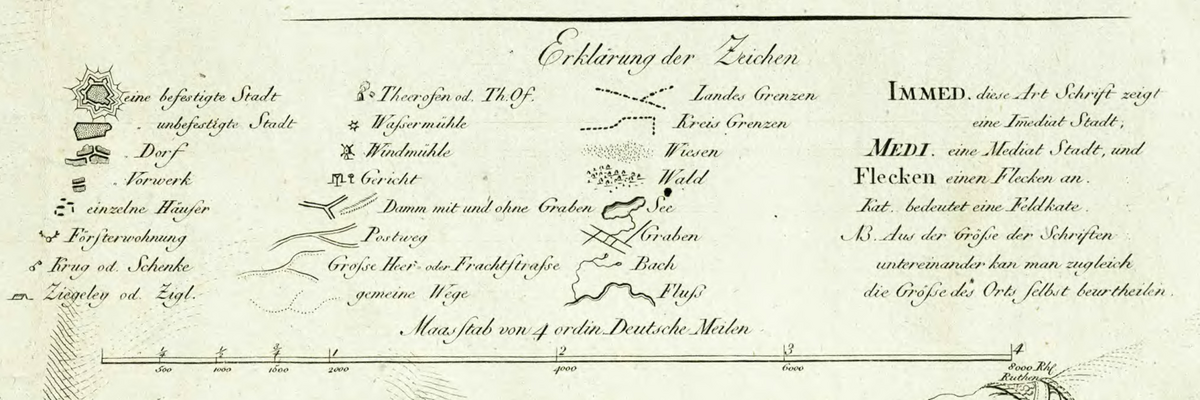 Erklärung der Zeichen
eine befestigte Stadt
unbefestigte Stadt
Dorf
Vorwerk
einzelne Häuser
Försterwohnung
Krug od. Schenke
Ziegeley od. Zigl.
Theerofen od. Th.Of.
Waßermühle
Windmühle
Gericht
Damm mit und ohne Graben
Postweg
Große Heer- oder Frachtstrasse
gemeine Wege
Landes Grenzen
Kreis Grenzen
Wiesen
Wald
See
Graben
Bach
Fluß
IMMED. diese Art Schrift zeigt
eine Imediat Stadt,
MEDI. eine Mediat Stadt, und
Flecken einen Flecken an.
Kat. bedeutet eine Feldkate.
NB. Aus der Größe der Schriften
untereinander kan man zugleich
die Größe des Orts selbst beurtheilen.
Maasstab von 4 ordin. Deutsche Meilen
¼ ½ ¾ 1 2 3 4
500 1000 1500 2000 4000 6000 8000 Rhl
Ruthen